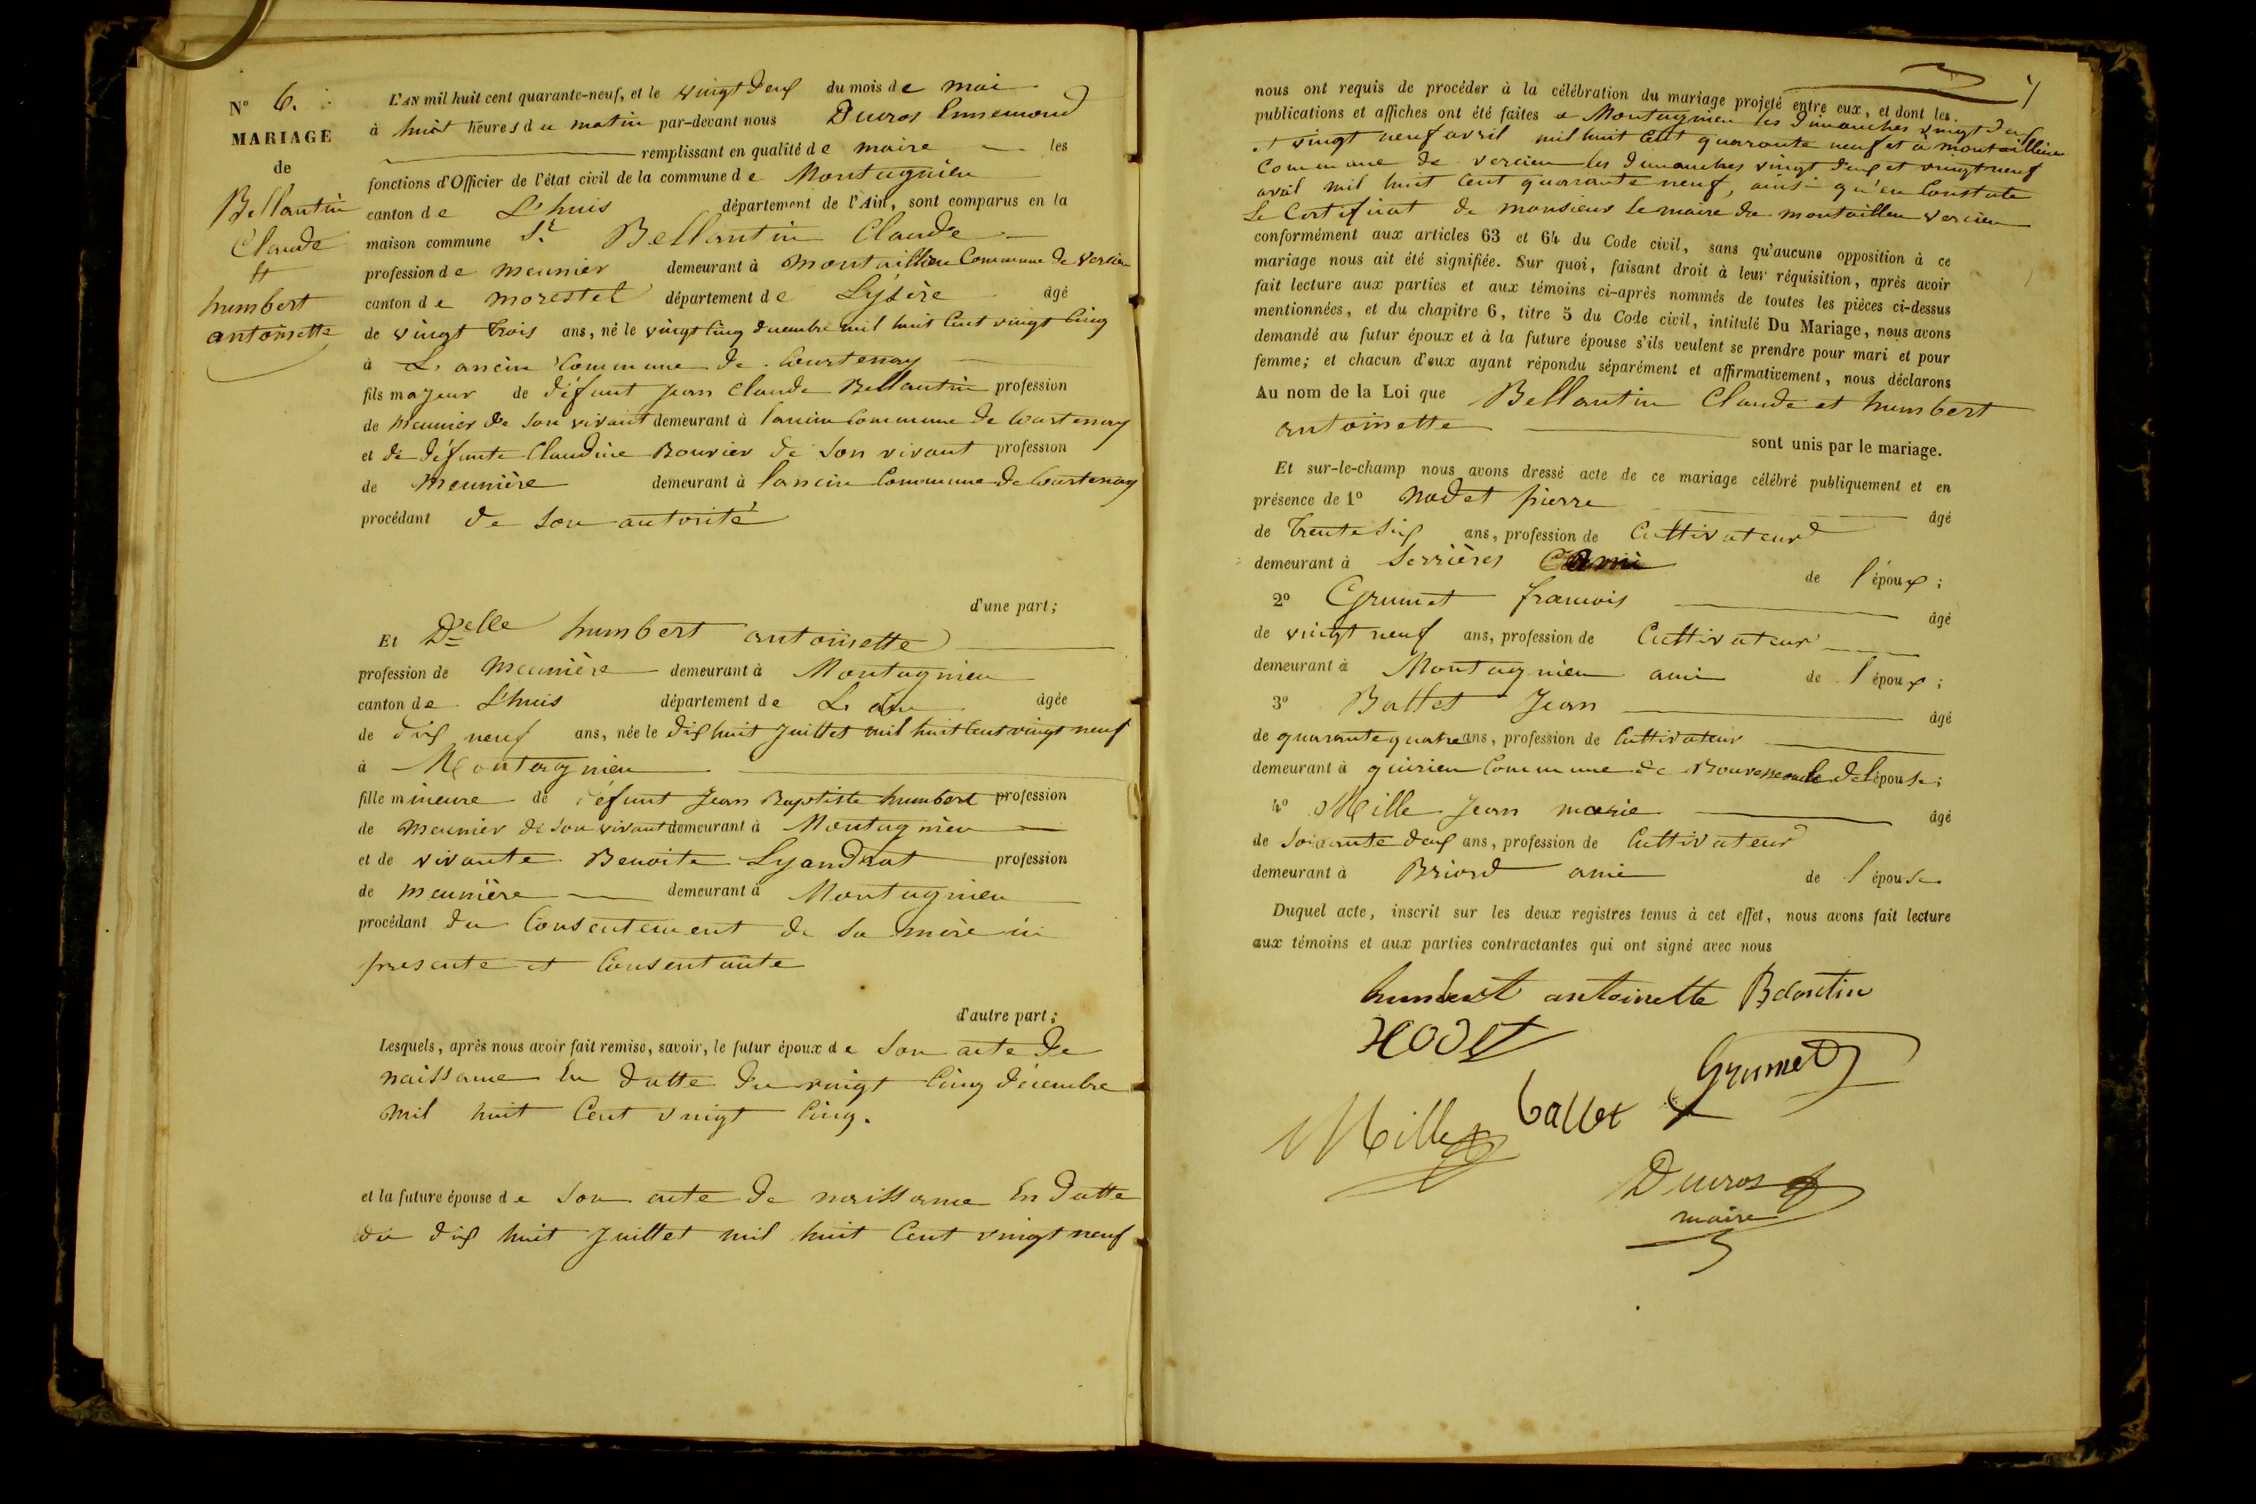 N° 6.
MARIAGE
de
Bellantin
Claude
et
humbert
antoinette
L'AN mil huit cent quarante-neuf, et le vingt deux du mois de mai
à huit heures du matin par-devant nous Ducros Ennemond
remplissant en qualité de maire les
fonctions d'Officier de l'état civil de la commune de Montagnieu
canton de L'huis département de l'Ain, sont comparus en la
maison commune Sr. Bellantin Claude
profession de meunier demeurant à montaillieu Commune de vercieu
canton de morestel département de Lysère âgé
de vingt trois ans, né le vingt cinq decembre mil huit Cent vingt Cinq
à Lancin Commune de Courtenay
fils majeur de défunt jean claude Bellantin profession
de meunier de son vivant demeurant à lancin Commune de Courtenay
et de défunte Claudine Bouvier de son vivant profession
de meunière demeurant à lancin Commune de Courtenay
procédant de son autorité
d'une part;
Et Delle humbert antoinette
profession de meunière demeurant à Montagnieu
canton de L'huis département de L'ain âgée
de dix neuf ans, née le dix huit juillet mil huit Cent vingt neuf
à Montagnieu
fille mineure de défunt Jean Baptiste humbert profession
de meunier de son vivant demeurant à Montagnieu
et de vivante Benoite Lyandrat profession
de meunière demeurant à Montagnieu
procédant du Consentement de sa mère ici
presente et Consentante
d'autre part;
Lesquels, après nous avoir fait remise, savoir, le futur époux de son acte de
naissance En datte du vingt Cinq décembre
mil huit Cent vingt Cinq.
et la future épouse de son acte de naissance En datte
du dix huit Juillet mil huit Cent vingt neuf
nous ont requis de procéder à la célébration du mariage projeté entre eux, et dont les
publications et affiches ont été faites a Montagnieu les dimanches vingt deux
et vingt neuf avril mil huit Cent quarante neuf et à montaillieu
Commune de vercieu les dimanches vingt deux et vingt neuf
avril mil huit Cent quarante neuf, ainsi qu'en Constate
Le Certificat de monsieur Le maire de montaillieu vercieu
conformément aux articles 63 et 64 du Code civil, sans qu'aucune opposition à ce
mariage nous ait été signifiée. Sur quoi, faisant droit à leur réquisition, après avoir
fait lecture aux parties et aux témoins ci-après nommés de toutes les pièces ci-dessus
mentionnées, et du chapitre 6, titre 5 du Code civil, intitulé Du Mariage, nous avons
demandé au futur époux et à la future épouse s'ils veulent se prendre pour mari et pour
femme; et chacun d'eux ayant répondu séparément et affirmativement, nous déclarons
Au nom de la Loi que Bellantin Claude et humbert
antoinette sont unis par le mariage.
Et sur-le-champ nous avons dressé acte de ce mariage célébré publiquement et en
présence de 1° Nodet pierre âgé
de trente six ans, profession de Cultivateur
demeurant à Serrières ami de l'époux;
2° Grumet francois âgé
de vingt neuf ans, profession de Cultivateur
demeurant à Montagnieu ami de l'époux;
3° Ballet Jean âgé
de quarante quatre ans, profession de Cultivateur
demeurant à quirieu Commune de Bouvesse de lépouse;
4° Mille Jean marie âgé
de Soixante deux ans, profession de Cultivateur
demeurant à Briord ami de l'épouse
Duquel acte, inscrit sur les deux registres tenus à cet effet, nous avons fait lecture
aux témoins et aux parties contractantes qui ont signé avec nous
humbert antoinette Belantin
Nodet
Grumet
Mille ballet
Ducros
maire